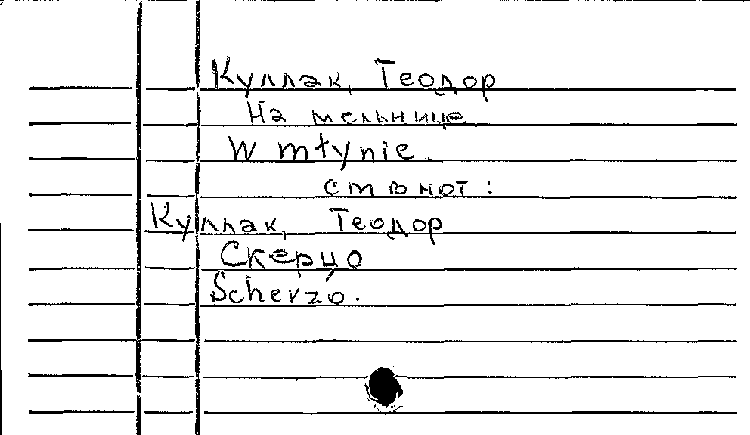 Куллак, Теодор
На мельнице
W młynie.
см в нот:
Куллак, Теодор
Скерцо
Scherzo.